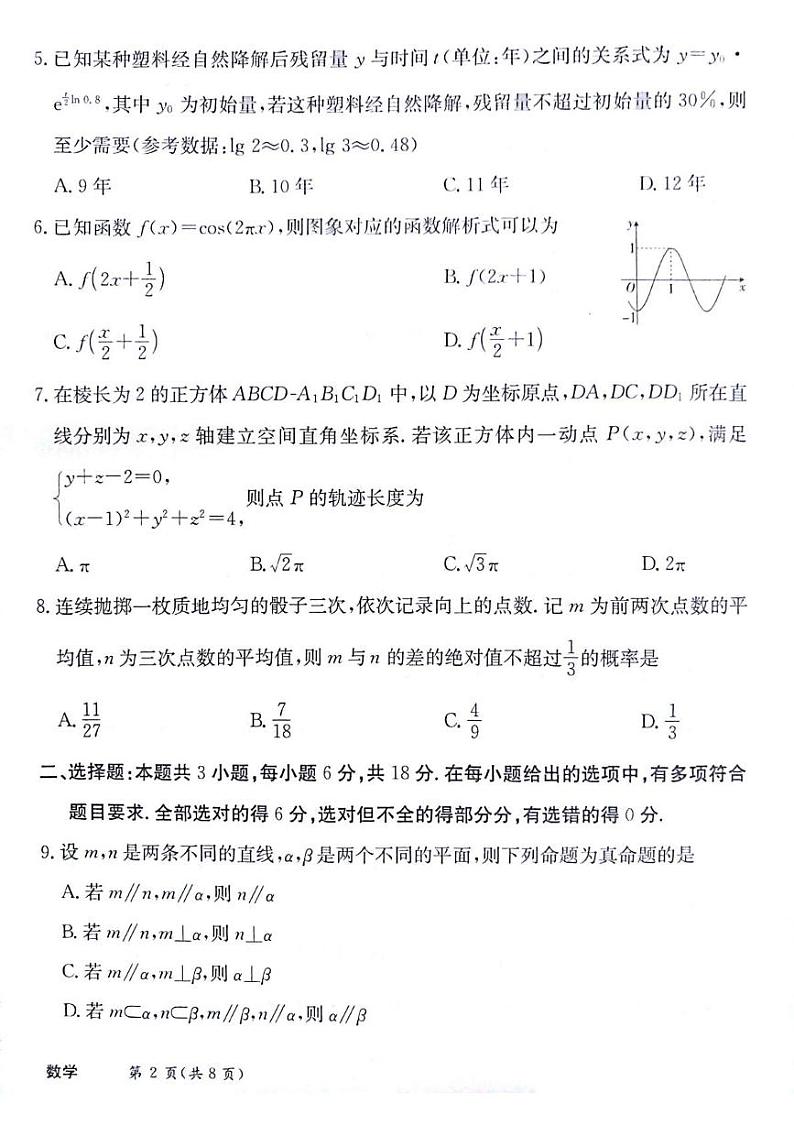 5. 已知某种塑料经自然降解后残留量 y 与时间 t(单位:年)之间的关系式为 y=y₀·
e^{\frac{t}{2}\ln 0.8},其中 y₀ 为初始量,若这种塑料经自然降解,残留量不超过初始量的 30%,则
至少需要(参考数据:lg 2≈0.3,lg 3≈0.48)
A. 9 年 B. 10 年 C. 11 年 D. 12 年
6. 已知函数 f(x)=cos(2πx),则图象对应的函数解析式可以为
A. f(2x+\frac{1}{2}) B. f(2x+1)
C. f(\frac{x}{2}+\frac{1}{2}) D. f(\frac{x}{2}+1)
y 1 O 1 x -1
7. 在棱长为 2 的正方体 ABCD-A₁B₁C₁D₁ 中,以 D 为坐标原点,DA,DC,DD₁ 所在直
线分别为 x,y,z 轴建立空间直角坐标系. 若该正方体内一动点 P(x,y,z),满足
{y+z-2=0,
(x-1)²+y²+z²=4, 则点 P 的轨迹长度为
A. π B. √2π C. √3π D. 2π
8. 连续抛掷一枚质地均匀的骰子三次,依次记录向上的点数. 记 m 为前两次点数的平
均值,n 为三次点数的平均值,则 m 与 n 的差的绝对值不超过\frac{1}{3}的概率是
A. \frac{11}{27} B. \frac{7}{18} C. \frac{4}{9} D. \frac{1}{3}
二、选择题:本题共 3 小题,每小题 6 分,共 18 分. 在每小题给出的选项中,有多项符合
题目要求. 全部选对的得 6 分,选对但不全的得部分分,有选错的得 0 分.
9. 设 m,n 是两条不同的直线,α,β是两个不同的平面,则下列命题为真命题的是
A. 若 m∥n,m∥α,则 n∥α
B. 若 m∥n,m⊥α,则 n⊥α
C. 若 m∥α,m⊥β,则 α⊥β
D. 若 m⊂α,n⊂β,m∥β,n∥α,则 α∥β
数学 第 2 页(共 8 页)